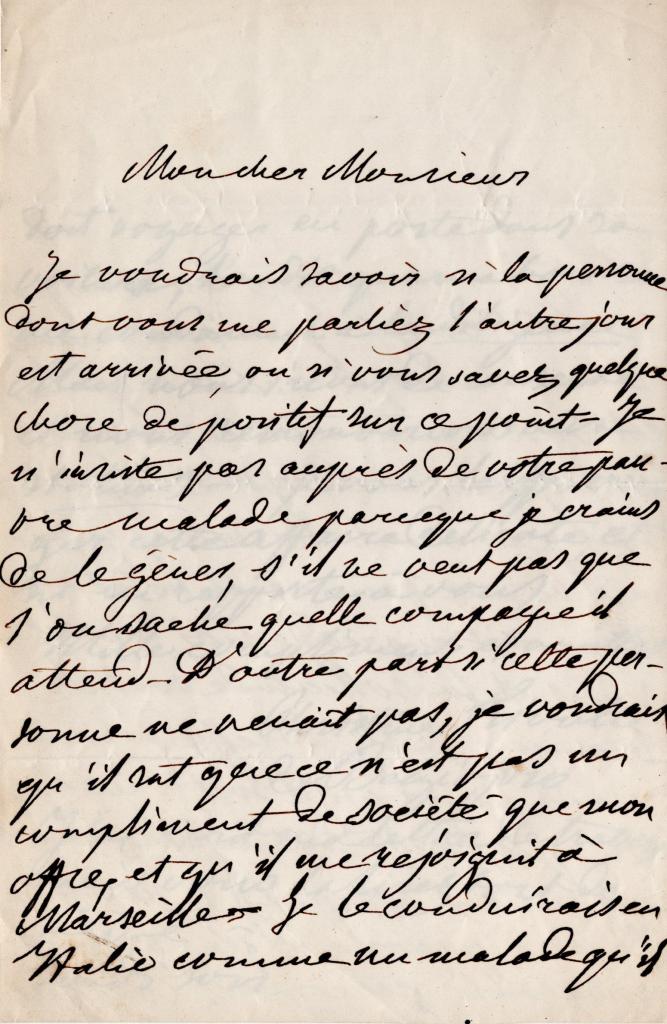 Mon cher Monsieur
Je voudrais savoir si la personne
dont vous me parliez l'autre jour
est arrivée ou si vous savez quelque
chose de positif sur ce point - Je
n'insiste pas auprès de votre pau-
vre malade parceque je crains
de le gêner, s'il ne veut pas que
l'on sache quelle compagnie il
attend - D'autre part si cette per-
sonne ne venait pas, je voudrais
qu'il sut que ce n'est pas un
compliment de société que mon
offre, et qu'il me rejoignit à
Marseille - Je le conduirais en
Italie comme un malade qu'il